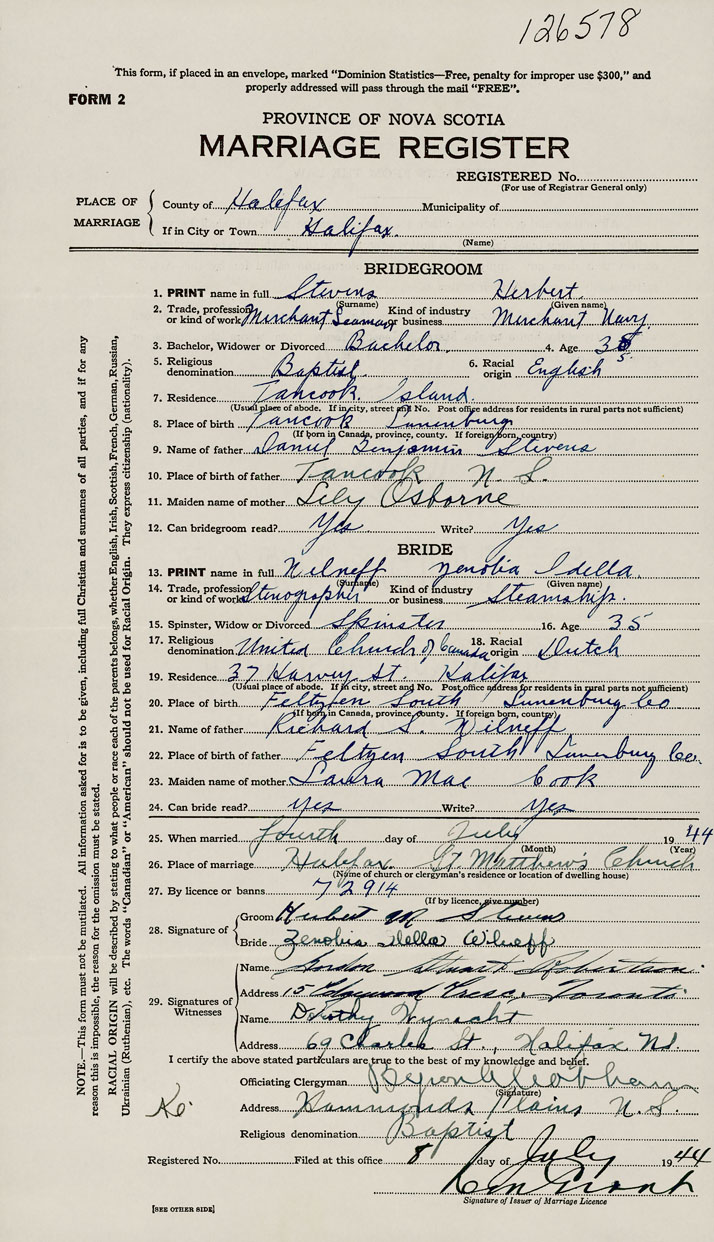 126578
This form, if placed in an envelope, marked "Dominion Statistics—Free, penalty for improper use $300," and
properly addressed will pass through the mail "FREE".
FORM 2
PROVINCE OF NOVA SCOTIA
MARRIAGE REGISTER
REGISTERED No.
(For use of Registrar General only)
PLACE OF MARRIAGE
County of Halifax Municipality of
If in City or Town Halifax.
(Name)
BRIDEGROOM
1. PRINT name in full Stevens Herbert
(Surname) (Given name)
2. Trade, profession or kind of work Merchant Seaman Kind of industry or business Merchant Navy
3. Bachelor, Widower or Divorced Bachelor 4. Age 35
5. Religious denomination Baptist 6. Racial origin English
7. Residence Tancook Island.
(Usual place of abode. If in city, street and No. Post office address for residents in rural parts not sufficient)
8. Place of birth Tancook Lunenburg
(If born in Canada, province, county. If foreign born, country)
9. Name of father Daniel Benjamin Stevens
10. Place of birth of father Tancook N. S.
11. Maiden name of mother Lily Osborne
12. Can bridegroom read? Yes Write? Yes
BRIDE
13. PRINT name in full Wilneff Zenobia Idella
(Surname) (Given name)
14. Trade, profession or kind of work Stenographer Kind of industry or business Steamship.
15. Spinster, Widow or Divorced Spinster 16. Age 35
17. Religious denomination United Church of Canada 18. Racial origin Dutch
19. Residence 37 Harvey St. Halifax
(Usual place of abode. If in city, street and No. Post office address for residents in rural parts not sufficient)
20. Place of birth Feltzen South Lunenburg Co
(If born in Canada, province, county. If foreign born, country)
21. Name of father Richard S. Wilneff
22. Place of birth of father Feltzen South Lunenburg Co.
23. Maiden name of mother Laura Mae Cook
24. Can bride read? yes Write? Yes
25. When married fourth day of July 1944
(Month) (Year)
26. Place of marriage Halifax St. Matthew's Church
(Name of church or clergyman's residence or location of dwelling house)
27. By licence or banns 72914
(If by licence, give number)
28. Signature of
Groom Herbert M Stevens
Bride Zenobia Idella Wilneff
29. Signatures of Witnesses
Name Gordon Stuart Robertson
Address 15 Edgewood Cresc. Toronto
Name Dorothy Wynacht
Address 69 Charles St., Halifax N.S.
I certify the above stated particulars are true to the best of my knowledge and belief.
Officiating Clergyman Byron
(Signature)
Address Hammonds Plains N.S.
Religious denomination Baptist
Registered No. Filed at this office 8 day of July 1944
Grant
Signature of Issuer of Marriage Licence
[SEE OTHER SIDE]
NOTE.—This form must not be mutilated. All information asked for is to be given, including full Christian and surnames of all parties, and if for any
reason this is impossible, the reason for the omission must be stated.
RACIAL ORIGIN will be described by stating to what people or race each of the parents belongs, whether English, Irish, Scottish, French, German, Russian,
Ukrainian (Ruthenian), etc. The words "Canadian" or "American" should not be used for Racial Origin. They express citizenship (nationality).